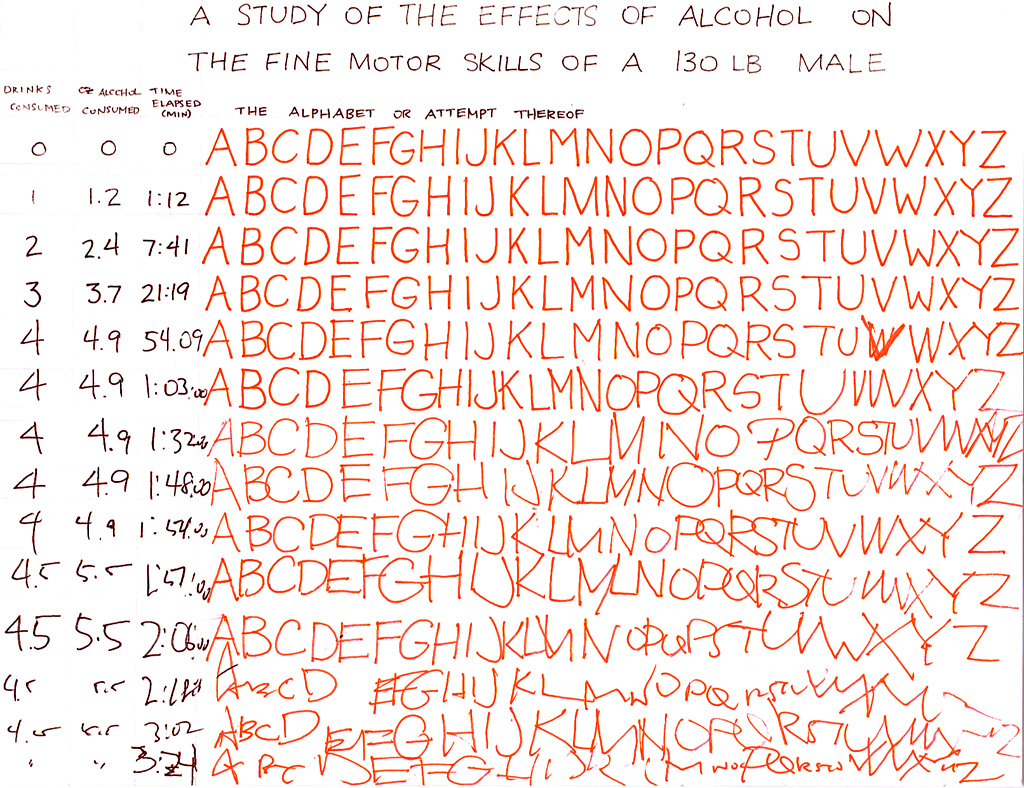 A STUDY OF THE EFFECTS OF ALCOHOL ON
THE FINE MOTOR SKILLS OF A 130 LB MALE
DRINKS CONSUMED OZ ALCOHOL CONSUMED TIME ELAPSED (MIN) THE ALPHABET OR ATTEMPT THEREOF
0 0 0 ABCDEFGHIJKLMNOPQRSTUVWXYZ
1 1.2 1:12 ABCDEFGHIJKLMNOPQRSTUVWXYZ
2 2.4 7:41 ABCDEFGHIJKLMNOPQRSTUVWXYZ
3 3.7 21:19 ABCDEFGHIJKLMNOPQRSTUVWXYZ
4 4.9 54.09 ABCDEFGHIJKLMNOPQRSTUVWXYZ
4 4.9 1:03:00 ABCDEFGHIJKLMNOPQRSTUVWXYZ
4 4.9 1:32:00 ABCDEFGHIJKLMNOPQRSTUVWXYZ
4 4.9 1:48:00 ABCDEFGHIJKLMNOPQRSTUVWXYZ
4 4.9 1:54:00 ABCDEFGHIJKLMNOPQRSTUVWXYZ
4.5 5.5 1:57:00 ABCDEFGHIJKLMNOPQRSTUVWXYZ
4.5 5.5 2:06:00 ABCDEFGHIJKLMNOPQRSTUVWXYZ
4.5 5.5 ABCD
4.5 5.5 3:02 ABCDEFGHIJKLMNOPQRSTU
" " 3:24